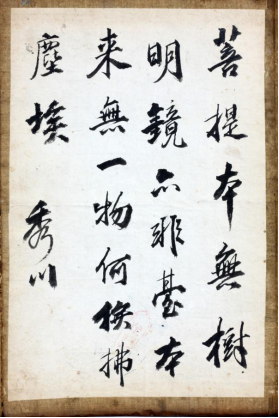 菩提本無樹
明鏡亦非臺本
来無一物何拂
塵埃
秀川